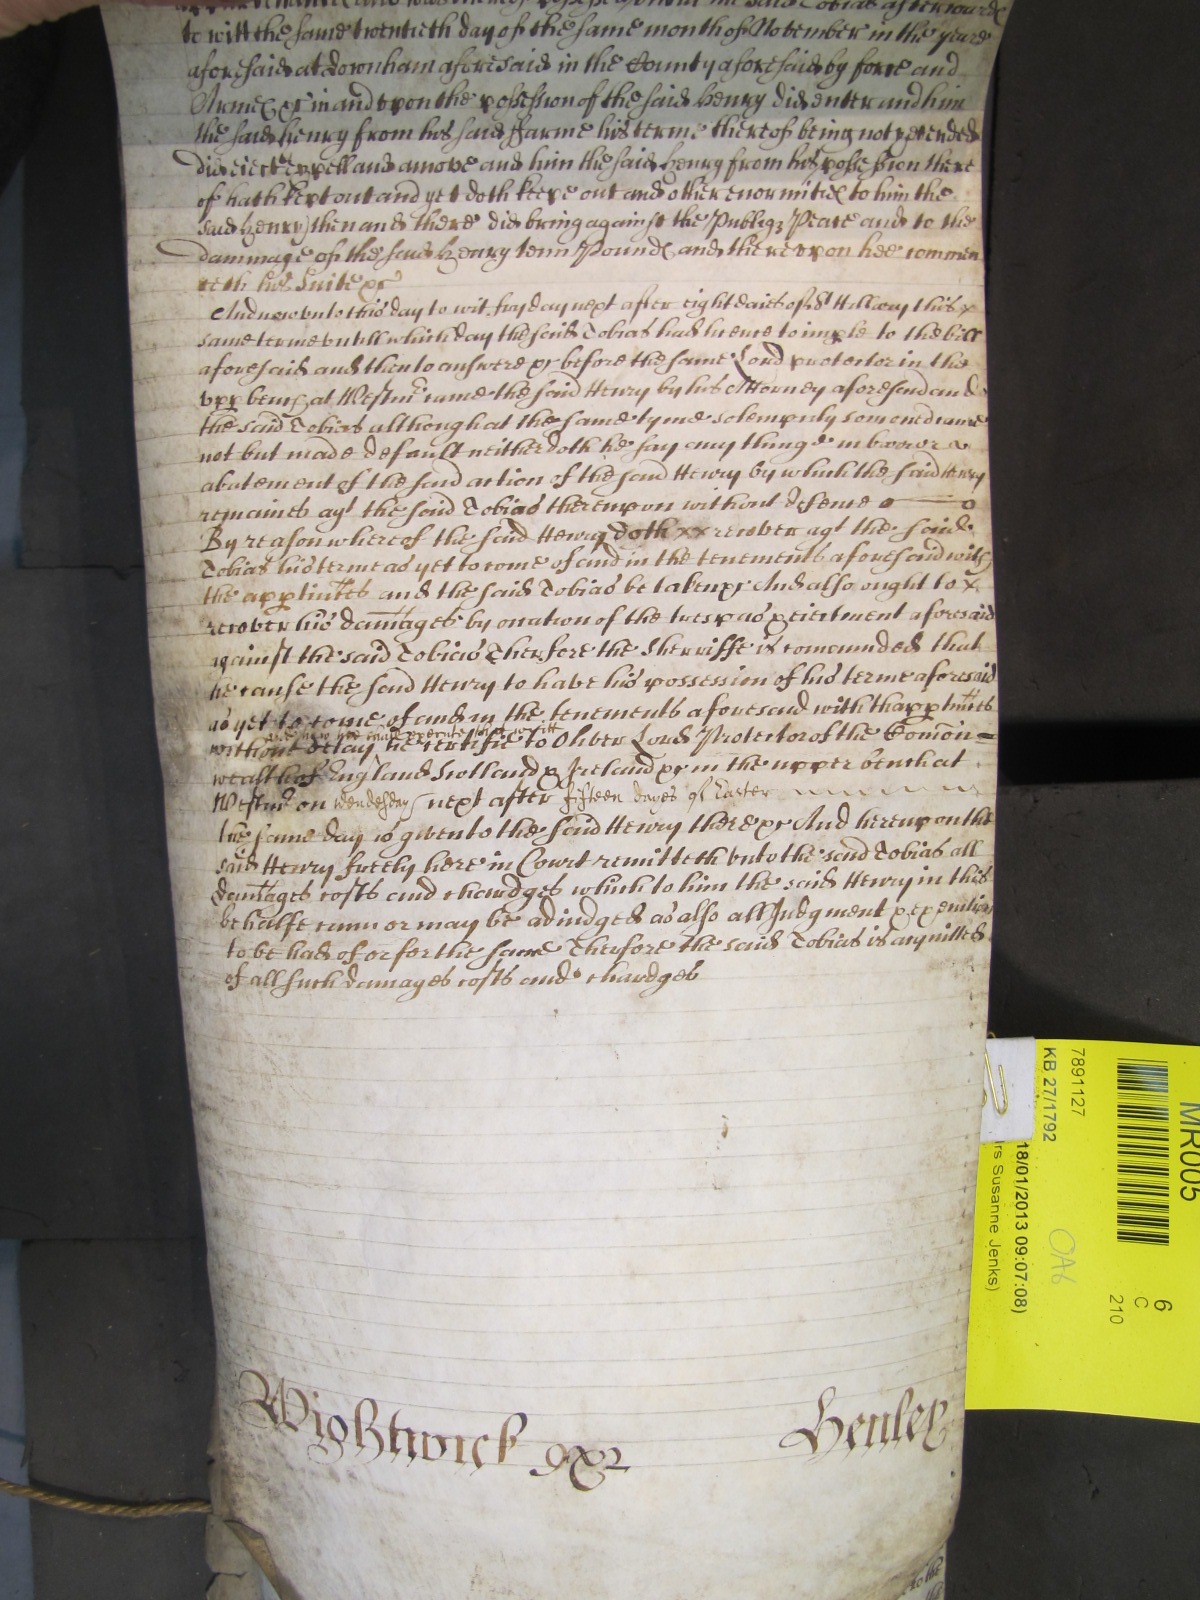 to witt the same twentieth day of the same month of November in the yeare
aforesaid at Downham aforesaid in the County aforesaid by force and
Armes &c in and upon the possession of the said Henry did enter and him
the said Henry from his said ffarme his terme thereof being not yet ended
did eiect expell and amove and him the said Henry from his possession there
of hath kept out and yet doth keepe out and other enormities to him the
said Henry then and there did bring against the Publiq Peace and to the
dammage of the said Henry tenn Pounds and thereupon hee commen
ceth his suite &c
And now unto this day to wit fryday next after eight daies of St Hillary this x
same terme untill which day the said Tobias had licence to imple to the bill
aforesaid and then to answere &c before the same Lord protector in the
upp bench at Westmr came the said Henry by his Attorney aforesaid and
the said Tobias although at the same tyme solempnly somoned came
not but made default neither doth he say any thinge in barr or
abatement of the said action of the said Henry by which the said Henry
remaines agt the said Tobias thereupon without defence
By reason whereof the said Henry doth xx recover agt the said
Tobias his terme as yet to come of and in the tenements aforesaid with
the apptintes and the said Tobias be taken &c And also ought to x
recover his damages by occation of the trespas & eiectment aforesaid
against the said Tobias Therfore the Sherriffe is comanded that
he cause the said Henry to have his possession of his terme aforesaid
as yet to come of and in the tenements aforesaid with thapptintes
and how hee shall execute that writt
without delay he certifie to Oliver Lord Protector of the Comon=
wealth of England Scotland & Ireland &c in the upper bench at
Westmr on Wendesday next after fifteen dayes of Easter
the same day is given to the said Henry there &c And hereupon the
said Henry freely here in Court remitteth unto the said Tobias all
damages costs and chardges which to him the said Henry in this
behalfe cann or may be adiudged as also all Judgment & execution
to be had of or for the same Therfore the said Tobias is acquitted
of all such damages costs and chardges
Wightwick 982 Henley
MR005
7891127
KB 27/1792
6
C
210
OA6
18/01/2013 09:07:08)
rs Susanne Jenks)